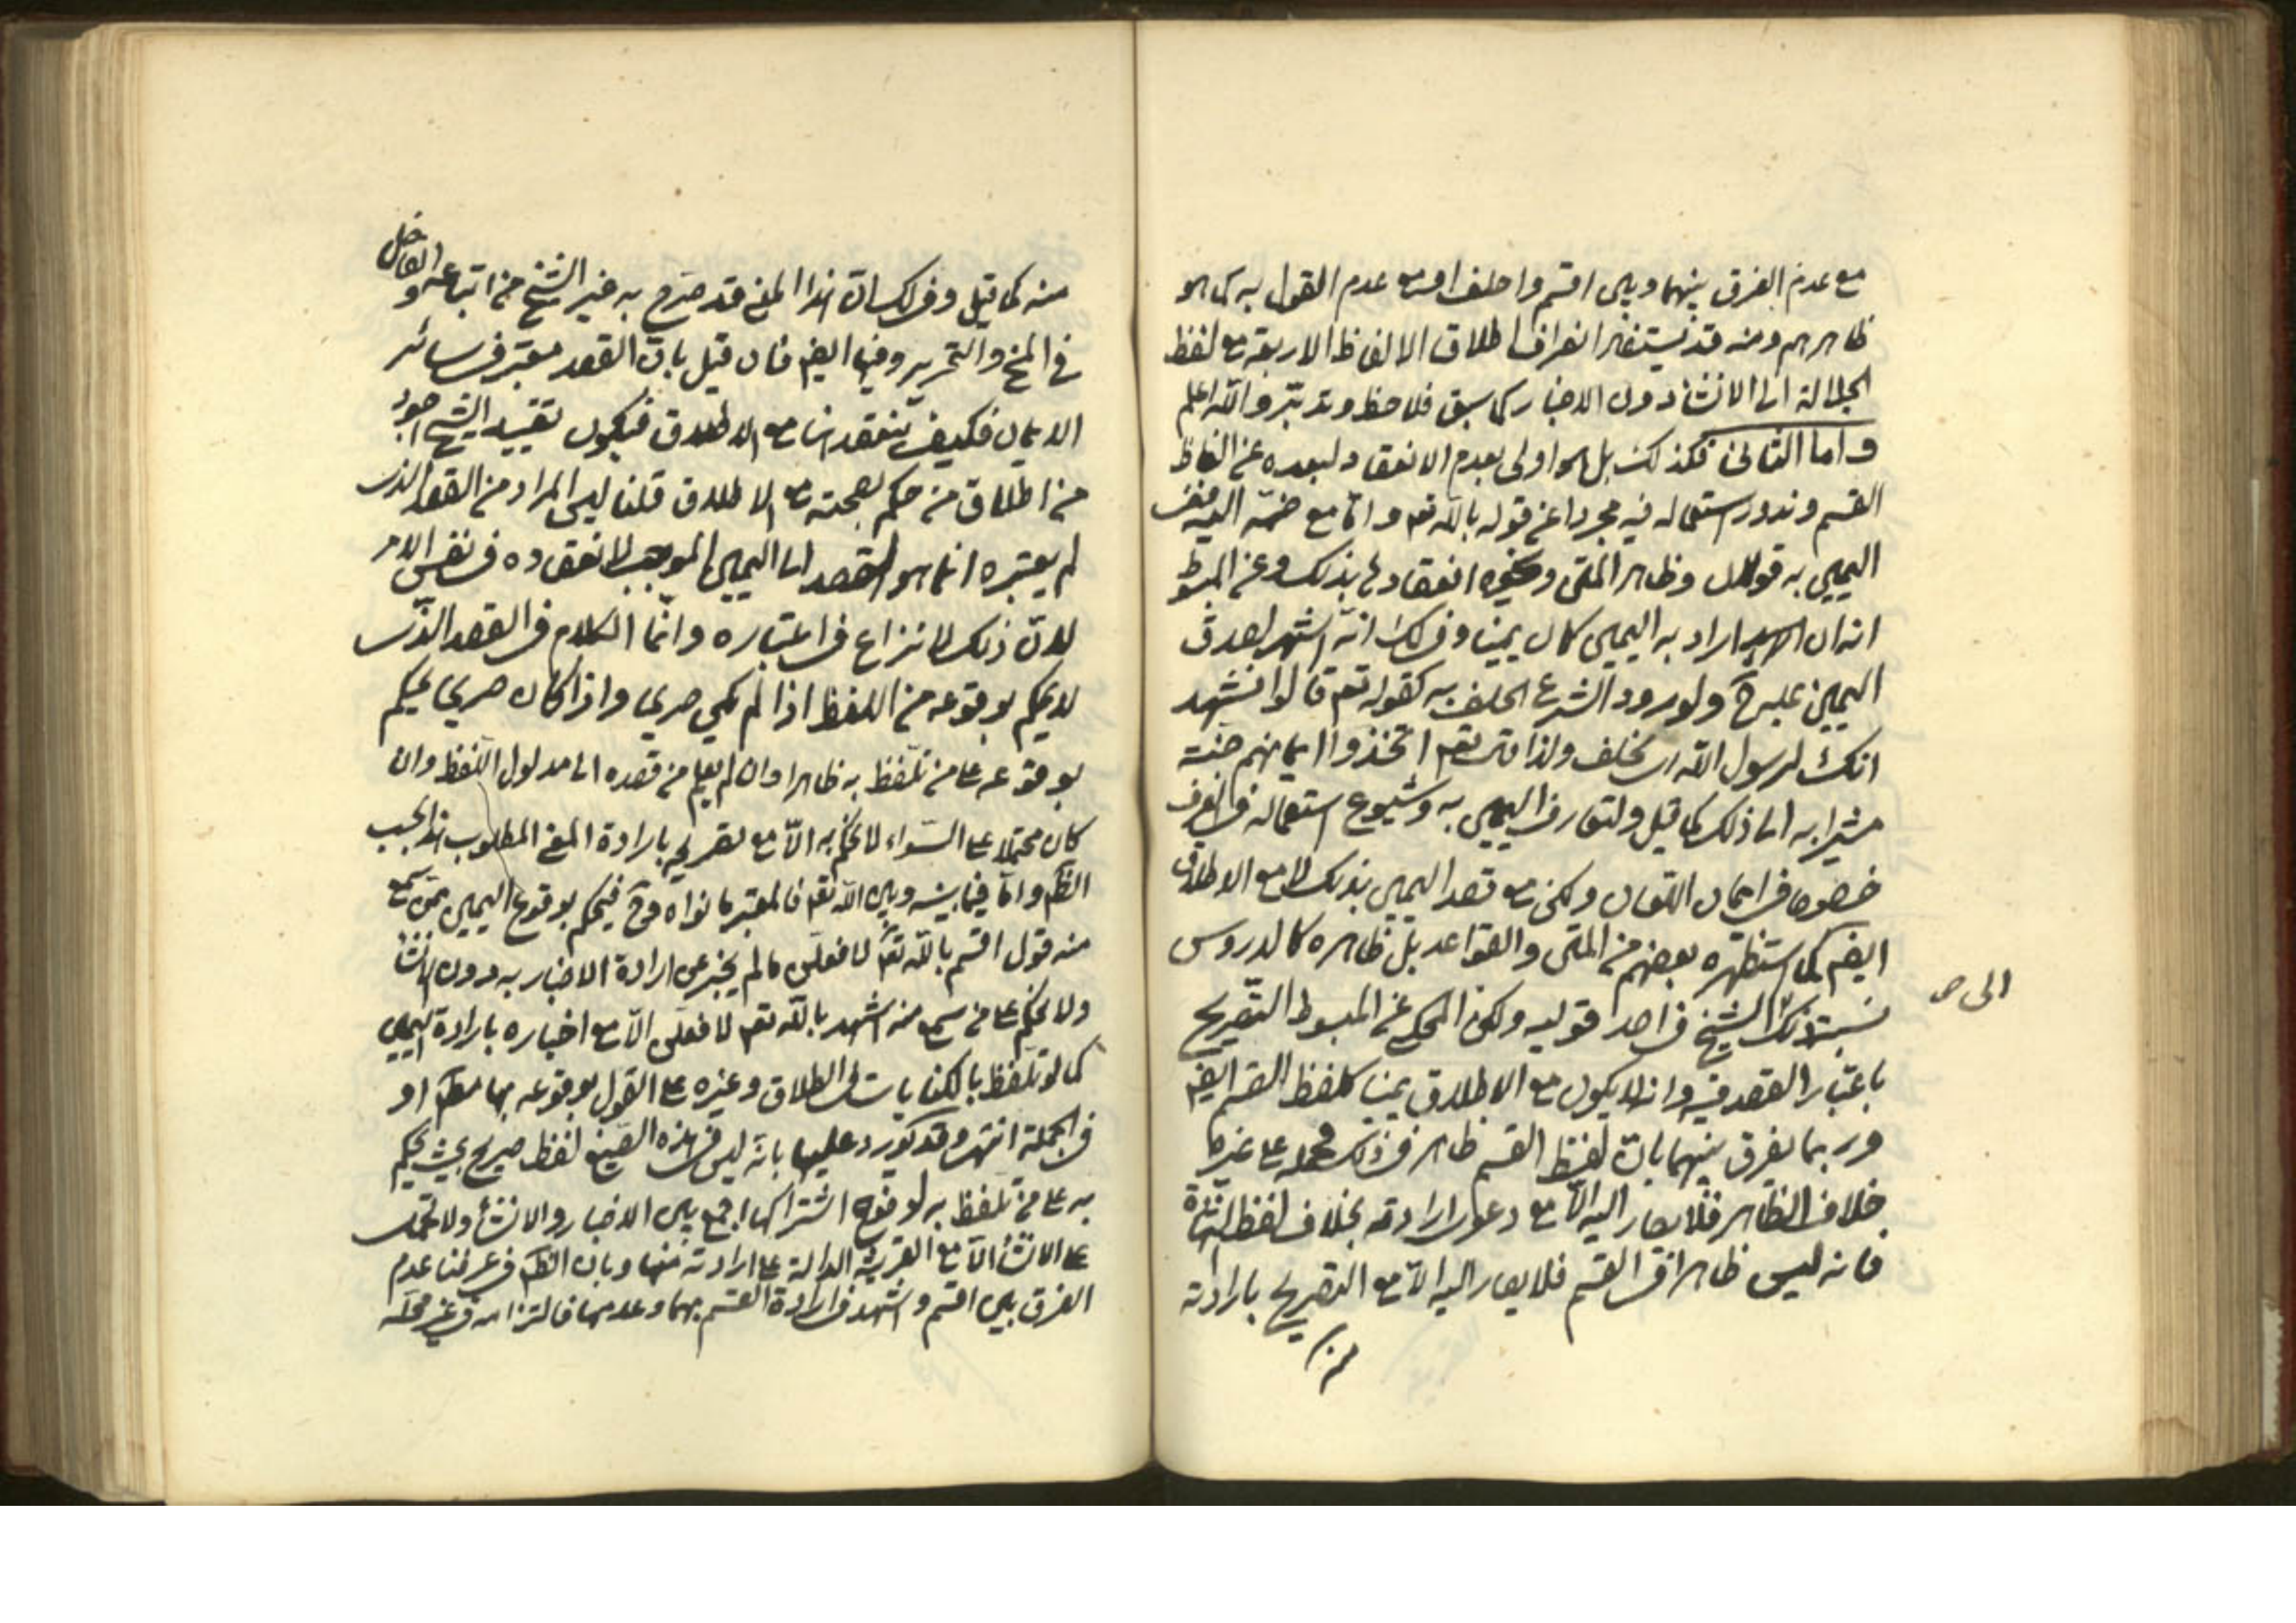 مع عدم الفرق بينهما وبين اقسم واحلف اقسم مع عدم القول به كما هو
ظاهرهم ومنه قد يستفاد انصراف اطلاق الالفاظ الاربعة مع لفظ
الجلالة الى الانشاء دون الاخبار كما سبق فلاحظ وتدبّر واللّه اعلم
واما الثانى فكذلك بل هو اولى بعدم الانعقاد لبعده عن الفاظ
القسم وندور استعماله فيه مجردا عن قوله باللّه تعم وامّا مع ضمّه اليه
اليمين به قولان وظاهر المتن وغيره انعقادها بذلك وعن المبسوط
انه ان اراد به اليمين كان يمينا وفى لك انّه اشهر لصدق
اليمين عليه ح ولورود الشرع الحلف به كقوله تعم قالوا نشهد
انك لرسول اللّه اى نحلف ولذا قال تعم اتخذوا ايمانهم جنّة
مشيرا به الى ذلك كما قيل ولتعارف اليمين به وشيوع استعماله فى العرف
خصوصا فى ايمان اللعان ولكن مع قصد اليمين بذلك لا مع الاطلاق
ايضم كما استظهره بعضهم من المتن والقواعد بل ظاهره كالدروس
نسبة ذلك الى الشيخ فى احد قوليه ولكن المحكى عن المبسوط التّصريح
باعتبار القصد فيه وانه لا يكون مع الاطلاق يمينا كلفظ القسم ايضم
وربما يفرق بينهما بانّ لفظ القسم ظاهر فى ذلك فحمله على غيرها
خلاف الظاهر فلا يصار اليه الّا مع دعوى ارادته بخلاف لفظ الشهادة
فانه ليس ظاهرا فى القسم فلا يصار اليه الّا مع التصريح بارادته
الى ص
منه كما قيل وفى لك ان هذا المعنى قد صرّح به غير الشيخ من اتباعه و الفاضل
فى المخ والتحرير وفيها ايضم فان قيل بان القصد معتبر فى سائر
الايمان فكيف تنعقد هنا مع الاطلاق فيكون تقييد الشيخ اجود
من اطلاق من حكم بصحته مع الاطلاق قلنا ليس المراد من القصد الذى
لم يعتبره انما هو القصد الى اليمين الموجب لانعقاده فى نفس الامر
لانّ ذلك لا نزاع فى اعتباره وانّما الكلام فى القصد الذّى
لا يحكم بوقوعه من اللفظ اذا لم يكن صريحا واذا كان صريحا يحكم
بوقوعه على من تلفظ به ظاهرا وان لم يعلم من قصده الى مدلول اللّفظ وان
كان محتملا على السّواء لا يحكم به الّا مع تصريحه بارادة المعنى المطلوب هذا بحسب
الظّم وامّا فيما بينه وبين اللّه تعم فالمعتبر ما نواه فح فيحكم بوقوع اليمين ممّن سمع
منه قول اقسم باللّه تعم لافعلن ما لم يخبر عن ارادة الاخبار به دون الانشاء
ولا يحكم على من سمع منه اشهد باللّه تعم لافعلن الّا مع اخباره بارادة اليمين
كما لو تلفظ بالكنايات فى الطلاق وغيره على القول بوقوعه بها مطم او
فى الجملة انتهى وقد يورد عليها بانّه ليس فى هذه الصّيغ لفظ صريح بحيث يحكم
به على من تلفظ به لوضوح اشتراكها اجمع بين الاخبار والانشاء ولا تحمل
على الانشاء الّا مع القرينة الدالة على ارادته منها وبان الظّم فى عرفنا عدم
الفرق بين اقسم واشهد فى ارادة القسم بهما وعدمها فالتزامه فى غير محلّه